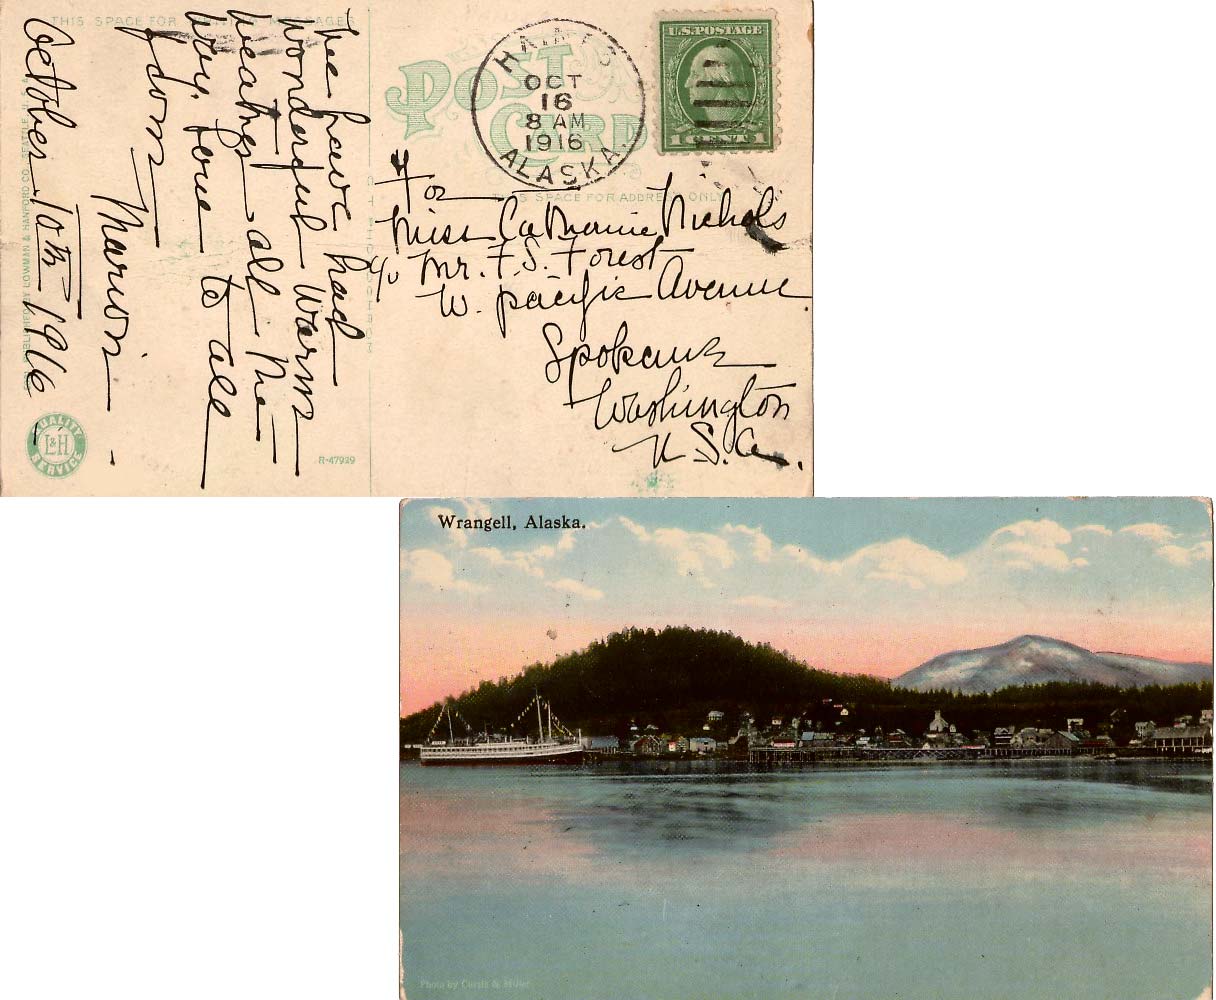 THIS SPACE FOR WRITING MESSAGES
We have had
wonderful warm
weather all the
way. Love to all
from
Marion
October 10th 1916
POST PUBLISHED BY LOWMAN & HANFORD CO. SEATTLE
QUALITY
L&H
SERVICE
R-47929
POST
CARD
HAINES
OCT
16
8 AM
1916
ALASKA.
U.S. POSTAGE
1 CENTS 1
THIS SPACE FOR ADDRESS ONLY
To
Miss Catharine Nichols
c/o Mr. F. S. Forest
W. Pacific Avenue
Spokane
Washington
U.S.A.
Wrangell, Alaska.
Photo by Curtis & Miller